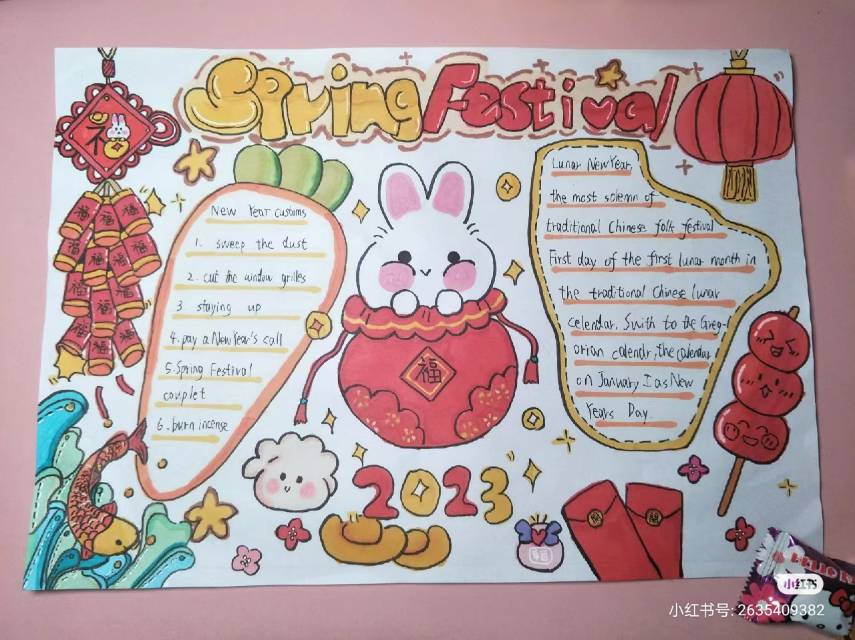 Spring Festival
New Year customs
1. sweep the dust
2. cut the window grilles
3 staying up
4. pay a New Year's call
5. Spring Festival
couplet
6. burn incense
Lunar New Year,
the most solemn of
traditional Chinese folk festival
First day of the first lunar month in
the traditional Chinese lunar
celendar. Swith to the Greg-
orian calendr, the calendar
on January 1 as New
Years Day.
福
2023
小红书
小红书号: 2635409382